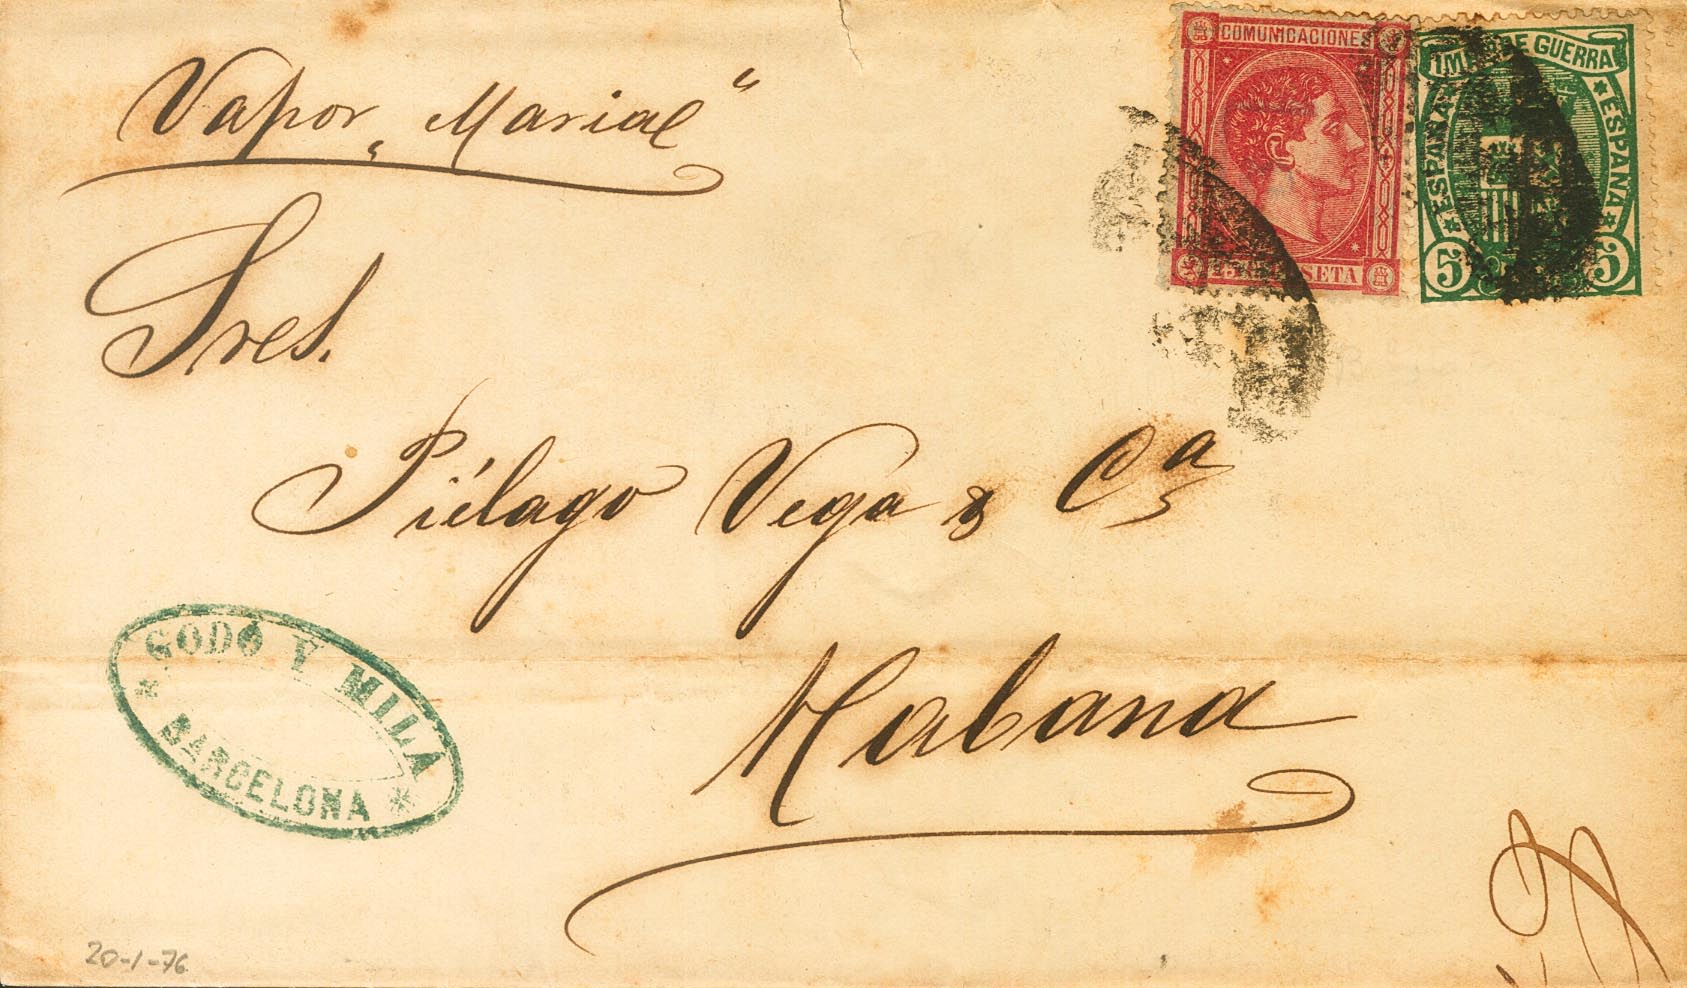 Vapor „Marial“
COMUNICACIONES
PESETA
IMP DE GUERRA
ESPAÑA
ESPAÑA
5 5
Sres.
Piélago Vega & Cª
Habana
GODÓ Y MILÁ
BARCELONA
20-1-76